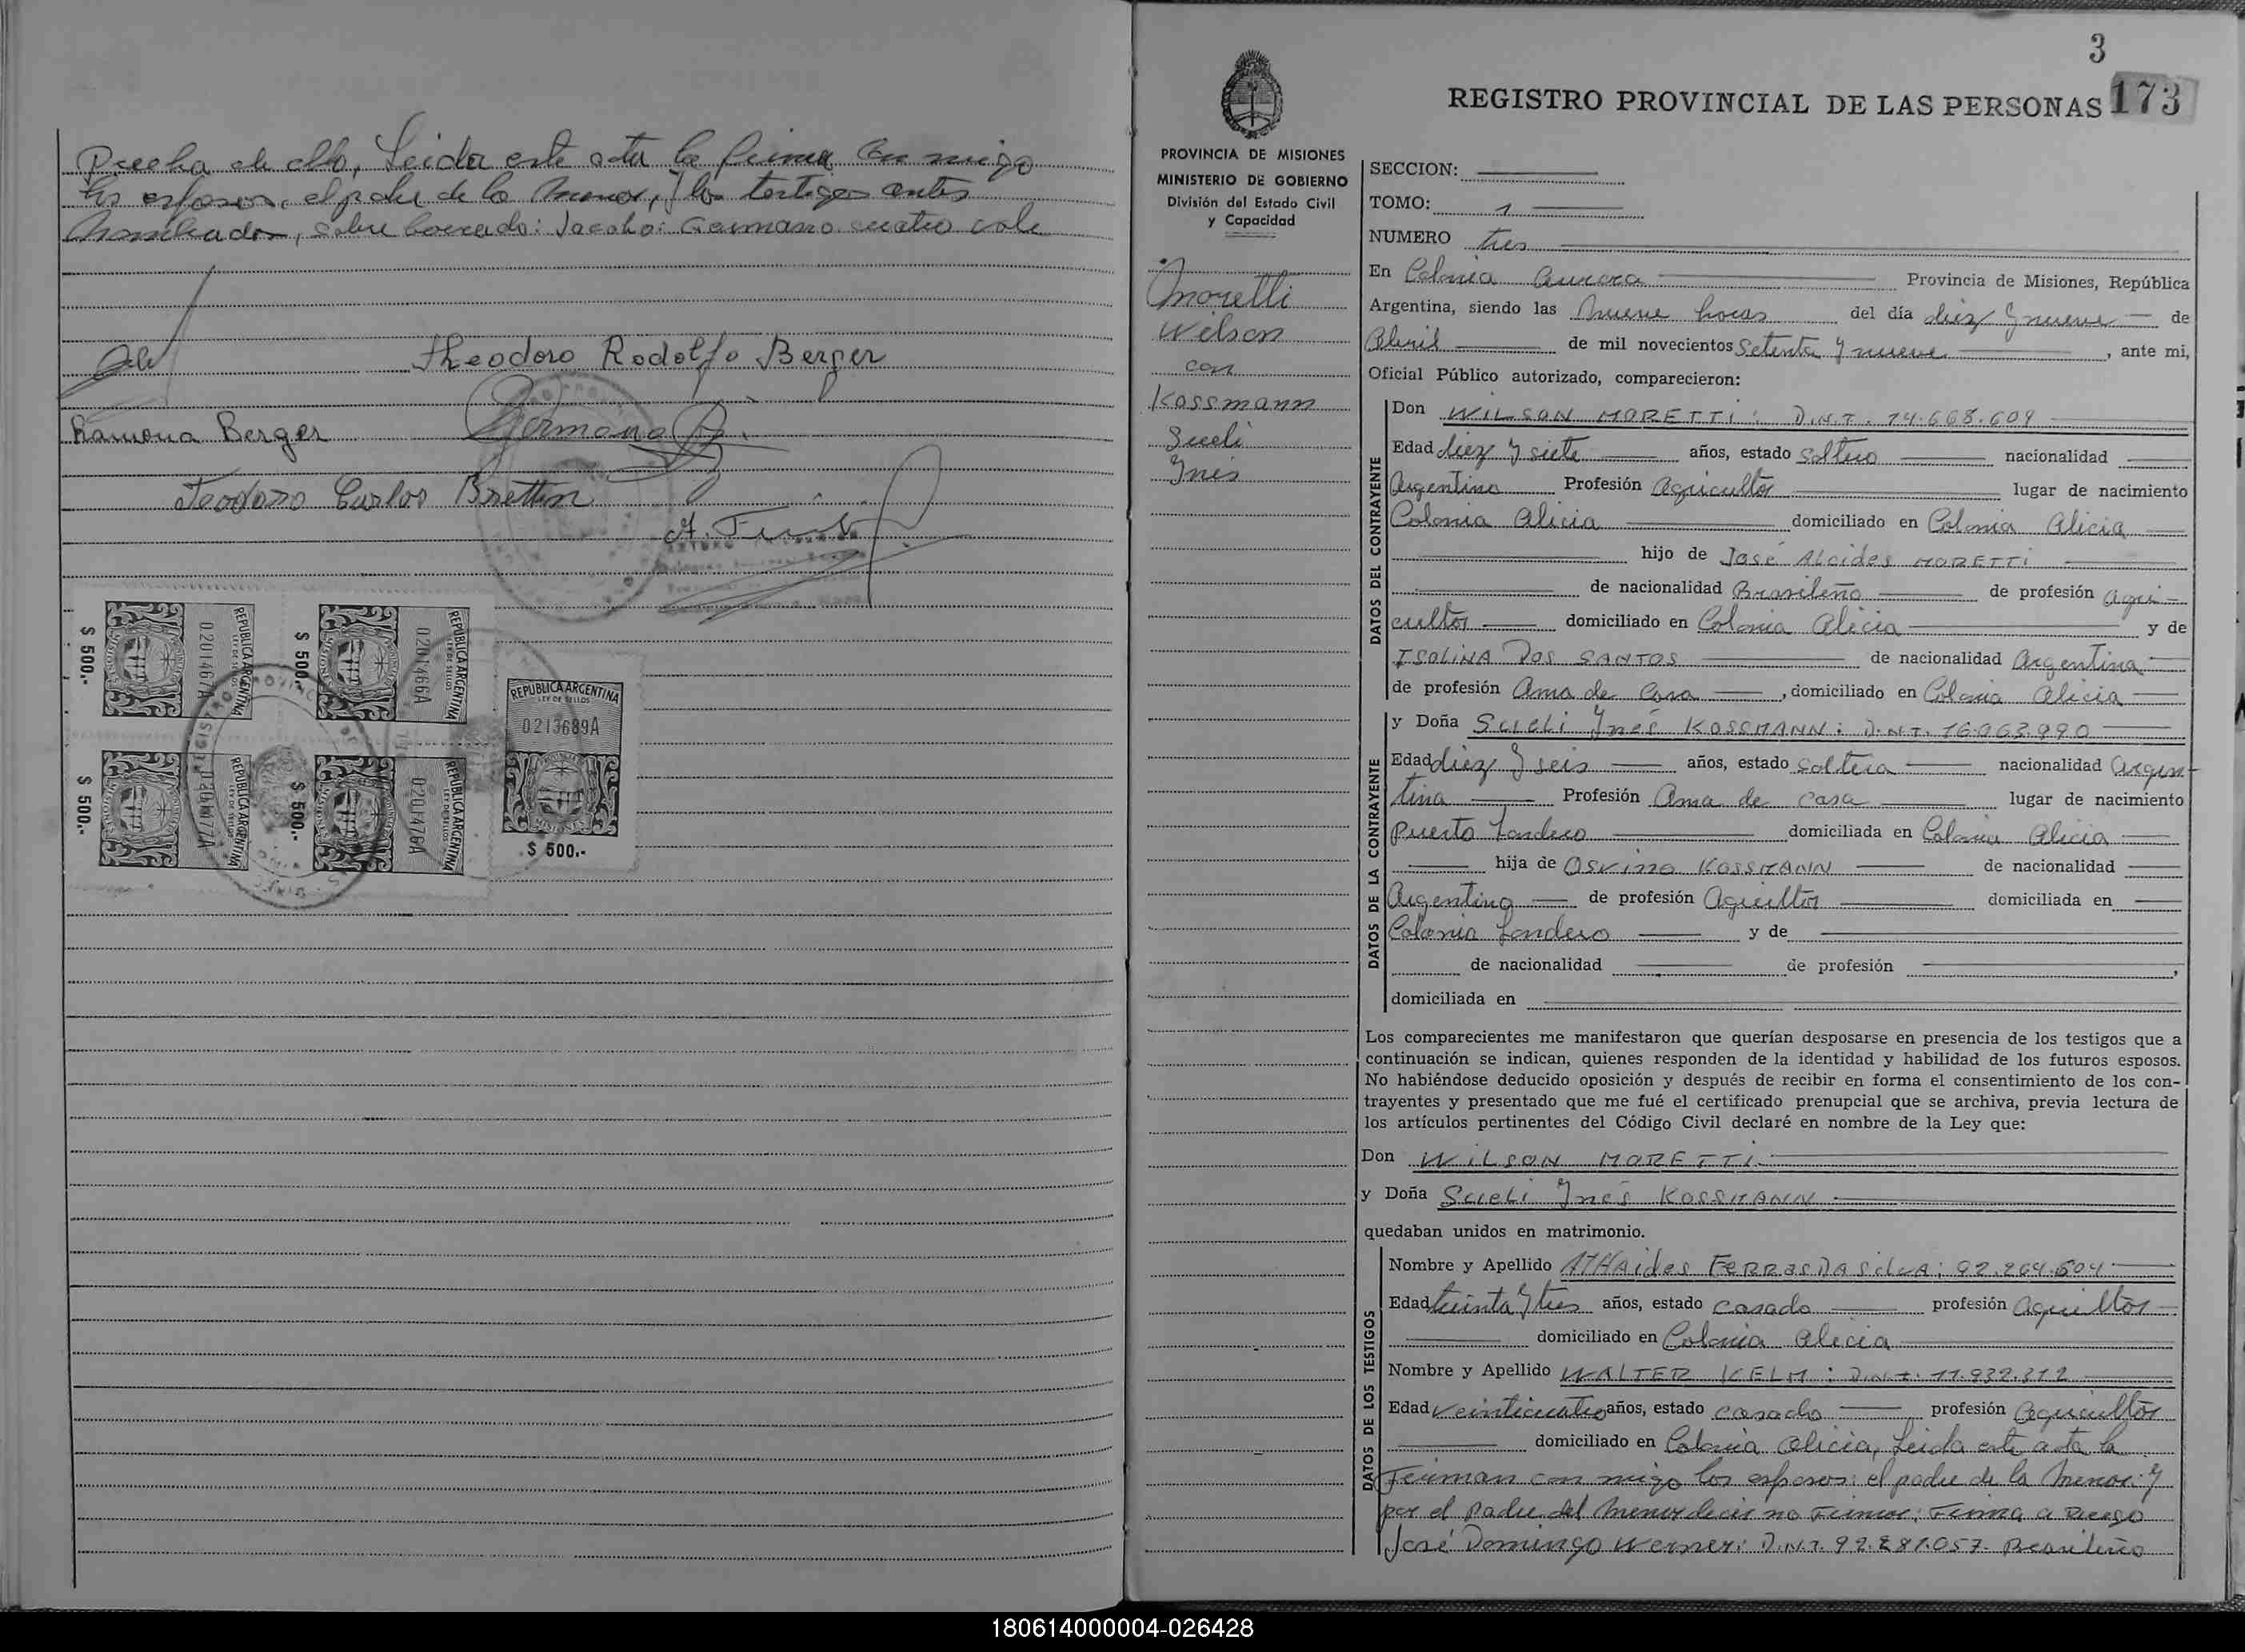 Leida este acta la firma con migo
los esposos, el padre de la menor, y los testigos antes
nombrados, sobre borrado: Jacobo: Germano cuatro vale
Theodoro Rodolfo Berger
Ramona Berger
Germano
Teodoro Carlos Brettin
REPUBLICA ARGENTINA
LEY DE SELLOS
0201467A
$ 500.-
REPUBLICA ARGENTINA
LEY DE SELLOS
0201466A
$ 500.-
REPUBLICA ARGENTINA
LEY DE SELLOS
0213689A
MISIONES
$ 500.-
REPUBLICA ARGENTINA
LEY DE SELLOS
$ 500.-
REPUBLICA ARGENTINA
LEY DE SELLOS
0201476A
$ 500.-
3
REGISTRO PROVINCIAL DE LAS PERSONAS 173
PROVINCIA DE MISIONES
MINISTERIO DE GOBIERNO
División del Estado Civil
y Capacidad
Moretti
Wilson
con
Kossmann
Sueli
Ynés
SECCION:
TOMO: 1
NUMERO tres
En Colonia Aurora Provincia de Misiones, República
Argentina, siendo las nueve horas del día diez y nueve de
Abril de mil novecientos setenta y nueve, ante mi,
Oficial Público autorizado, comparecieron:
DATOS DEL CONTRAYENTE
Don WILSON MORETTI: D.N.I. 14.668.609
Edad diez y siete años, estado soltero nacionalidad
Argentino Profesión Agricultor lugar de nacimiento
Colonia Alicia domiciliado en Colonia Alicia
hijo de José Alcides MORETTI
de nacionalidad Brasileño de profesión Agri-
cultor domiciliado en Colonia Alicia y de
ISOLINA DOS SANTOS de nacionalidad Argentina
de profesión Ama de Casa, domiciliado en Colonia Alicia
DATOS DE LA CONTRAYENTE
y Doña Sueli Ynés KOSSMANN: D.N.I. 16.063.990
Edad diez y seis años, estado soltera nacionalidad Argen-
tina Profesión Ama de casa lugar de nacimiento
Puerto Londero domiciliada en Colonia Alicia
hija de Osvino KOSSMANN de nacionalidad
Argentino de profesión Agricultor domiciliada en
Colonia Londero y de
de nacionalidad de profesión ,
domiciliada en
Los comparecientes me manifestaron que querían desposarse en presencia de los testigos que a
continuación se indican, quienes responden de la identidad y habilidad de los futuros esposos.
No habiéndose deducido oposición y después de recibir en forma el consentimiento de los con-
trayentes y presentado que me fué el certificado prenupcial que se archiva, previa lectura de
los artículos pertinentes del Código Civil declaré en nombre de la Ley que:
Don WILSON MORETTI
y Doña Sueli Ynés KOSSMANN
quedaban unidos en matrimonio.
DATOS DE LOS TESTIGOS
Nombre y Apellido AtHAides FERRAS DA SilvA: 92.264.604
Edad treinta y tres años, estado casado profesión Agricultor
domiciliado en Colonia Alicia
Nombre y Apellido WALTER KELM: D.N.I. 11.932.312
Edad veinticuatro años, estado casado profesión Agricultor
domiciliado en Colonia Alicia, Leida este acta la
Firman con migo los esposos: el padre de la menor: y
por el padre del menor decir no Firmar: Firma a Ruego
José Domingo Werner: D.N.I. 92.281.057 Brasileño
180614000004-026428